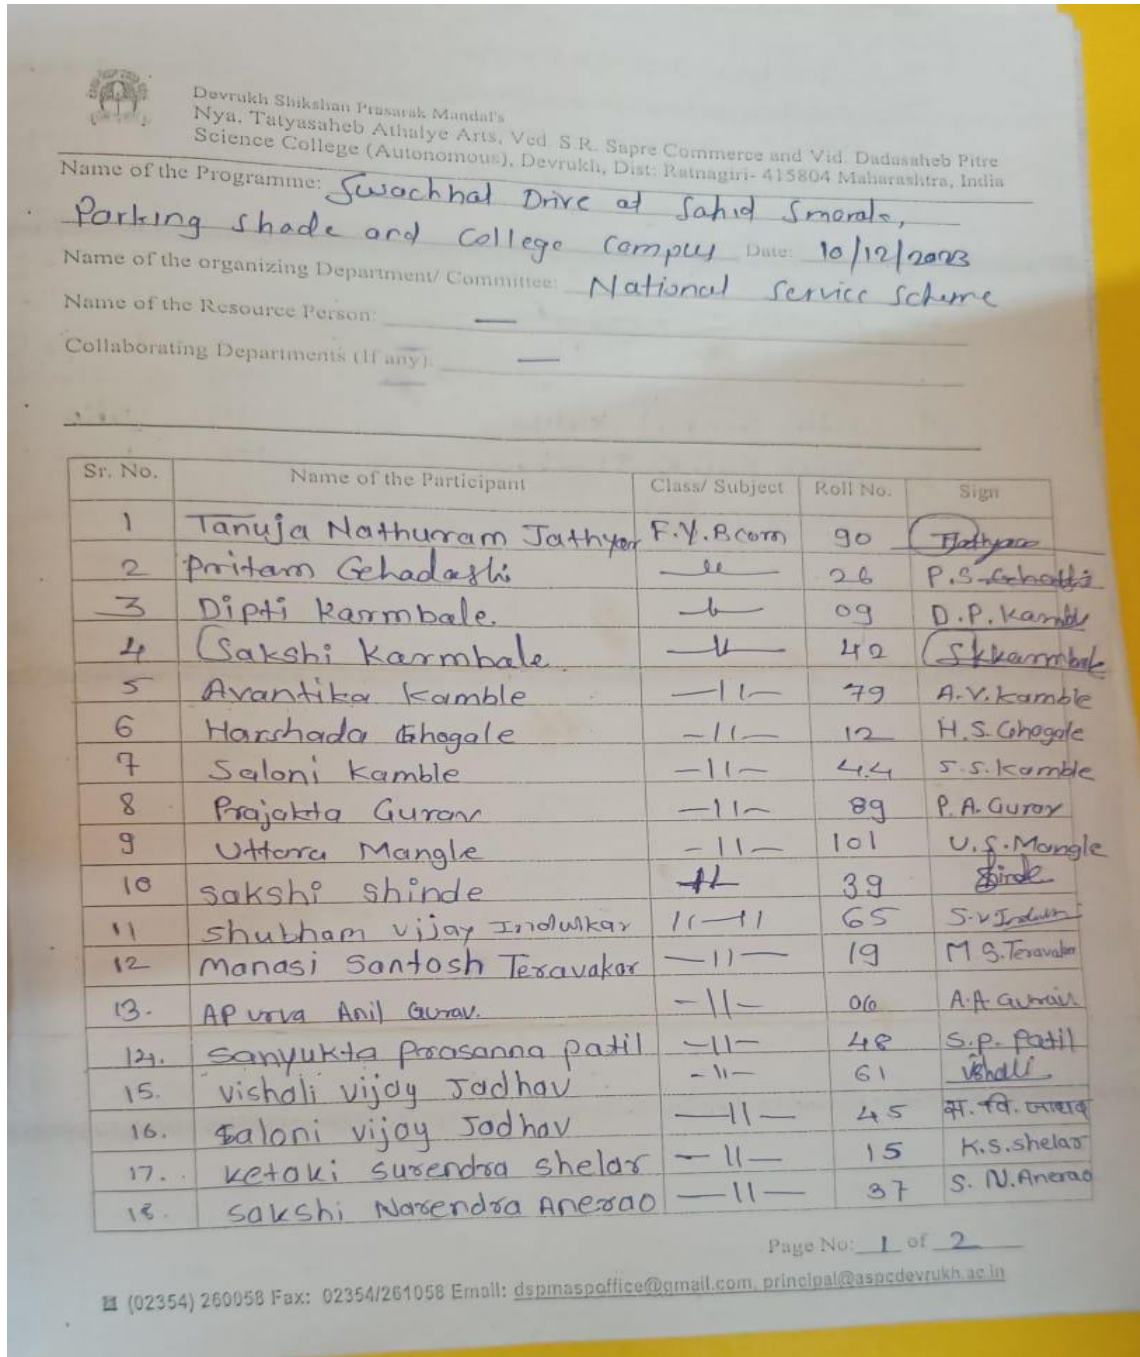 Devrukh Shikshan Prasarak Mandal's
Nya. Tatyasaheb Athalye Arts, Ved. S.R. Sapre Commerce and Vid. Dadasaheb Pitre
Science College (Autonomous), Devrukh, Dist: Ratnagiri- 415804 Maharashtra, India
Name of the Programme: Swachhat Drive at Sahid Smarak,
Parking Shade and College Campus Date: 10/12/2023
Name of the organizing Department/ Committee: National Service Scheme
Name of the Resource Person: —
Collaborating Departments (If any): —
Sr. No. Name of the Participant Class/ Subject Roll No. Sign
1 Tanuja Nathuram Jathyar F.Y.Bcom 90
2 Pritam Ghadashi –〃– 26 P.S.
3 Dipti Karmbale. –〃– 09 D.P. Kamble
4 Sakshi Karmbale –〃– 42 Skkarmbale
5 Avantika Kamble –11– 79 A.V. Kamble
6 Harshada Ghogale –11– 12 H.S. Ghogale
7 Saloni Kamble –11– 44 S.S. Kamble
8 Prajakta Gurav –11– 89 P.A. Gurav
9 Uttara Mangle –11– 101 U.S. Mangle
10 Sakshi Shinde –11– 39 Shinde
11 Shubham Vijay Indulkar 11–11 65 S.V
12 Manasi Santosh Teravakar –11– 19 M S.Teravakar
13. Apurva Anil Gurav. –11– 06 A.A. Gurav
14. Sanyukta Prasanna patil –11– 48 S.P. Patil
15. Vishali Vijay Jadhav –11– 61 Vishali
16. Saloni Vijay Jadhav –11– 45 स. वि. जाधव
17. Ketaki Surendra Shelar –11– 15 K.S.Shelar
18. Sakshi Narendra Anerao –11– 37 S. N. Anerao
Page No: 1 of 2
(02354) 260058 Fax: 02354/261058 Email: dspmaspoffice@gmail.com, principal@aspcdevrukh.ac.in